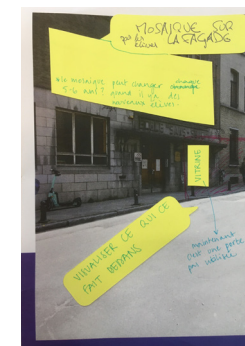 MOSAIQUE SUR
par les
élèves
LA FAÇADE
la mosaique peut changer chaque
5-6 ans? quand il y a des
nouveaux élèves.
VITRINE
VISUALISER CE QUI CE
FAIT DEDANS
maintenant
c'est une porte
pas utilisée